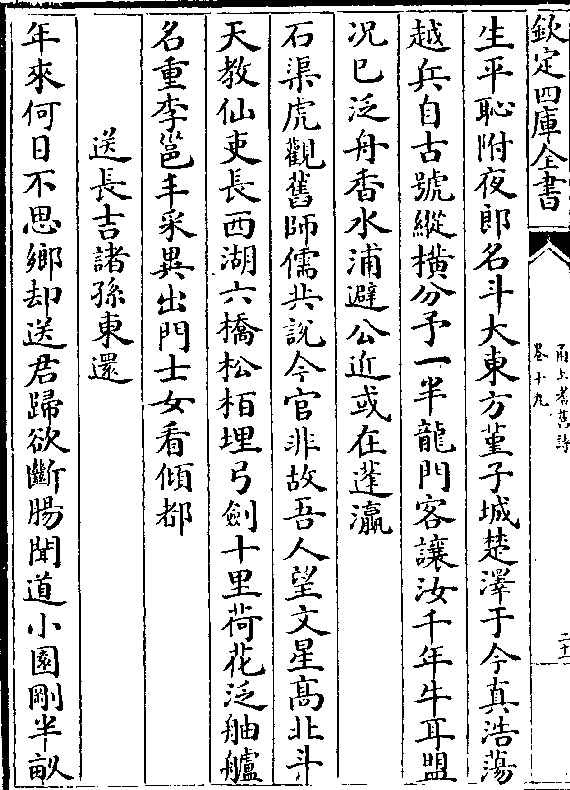 欽定四庫全書
甬上耆舊詩
卷十九
二十一
生平恥附夜郎名斗大東方菫子城楚澤于今真浩蕩
越兵自古號縱橫分予一半龍門客讓汝千年牛耳盟
况巳泛舟香水浦避公近或在蓬瀛
石渠虎觀舊師儒共說今官非故吾人望文星髙北斗
天教仙吏長西湖六橋松栢埋弓劍十里荷花泛舳艫
名重李邕丰采異出門士女看傾都
送長吉諸孫東還
年來何日不思鄉却送君歸欲斷腸聞道小園剛半畝